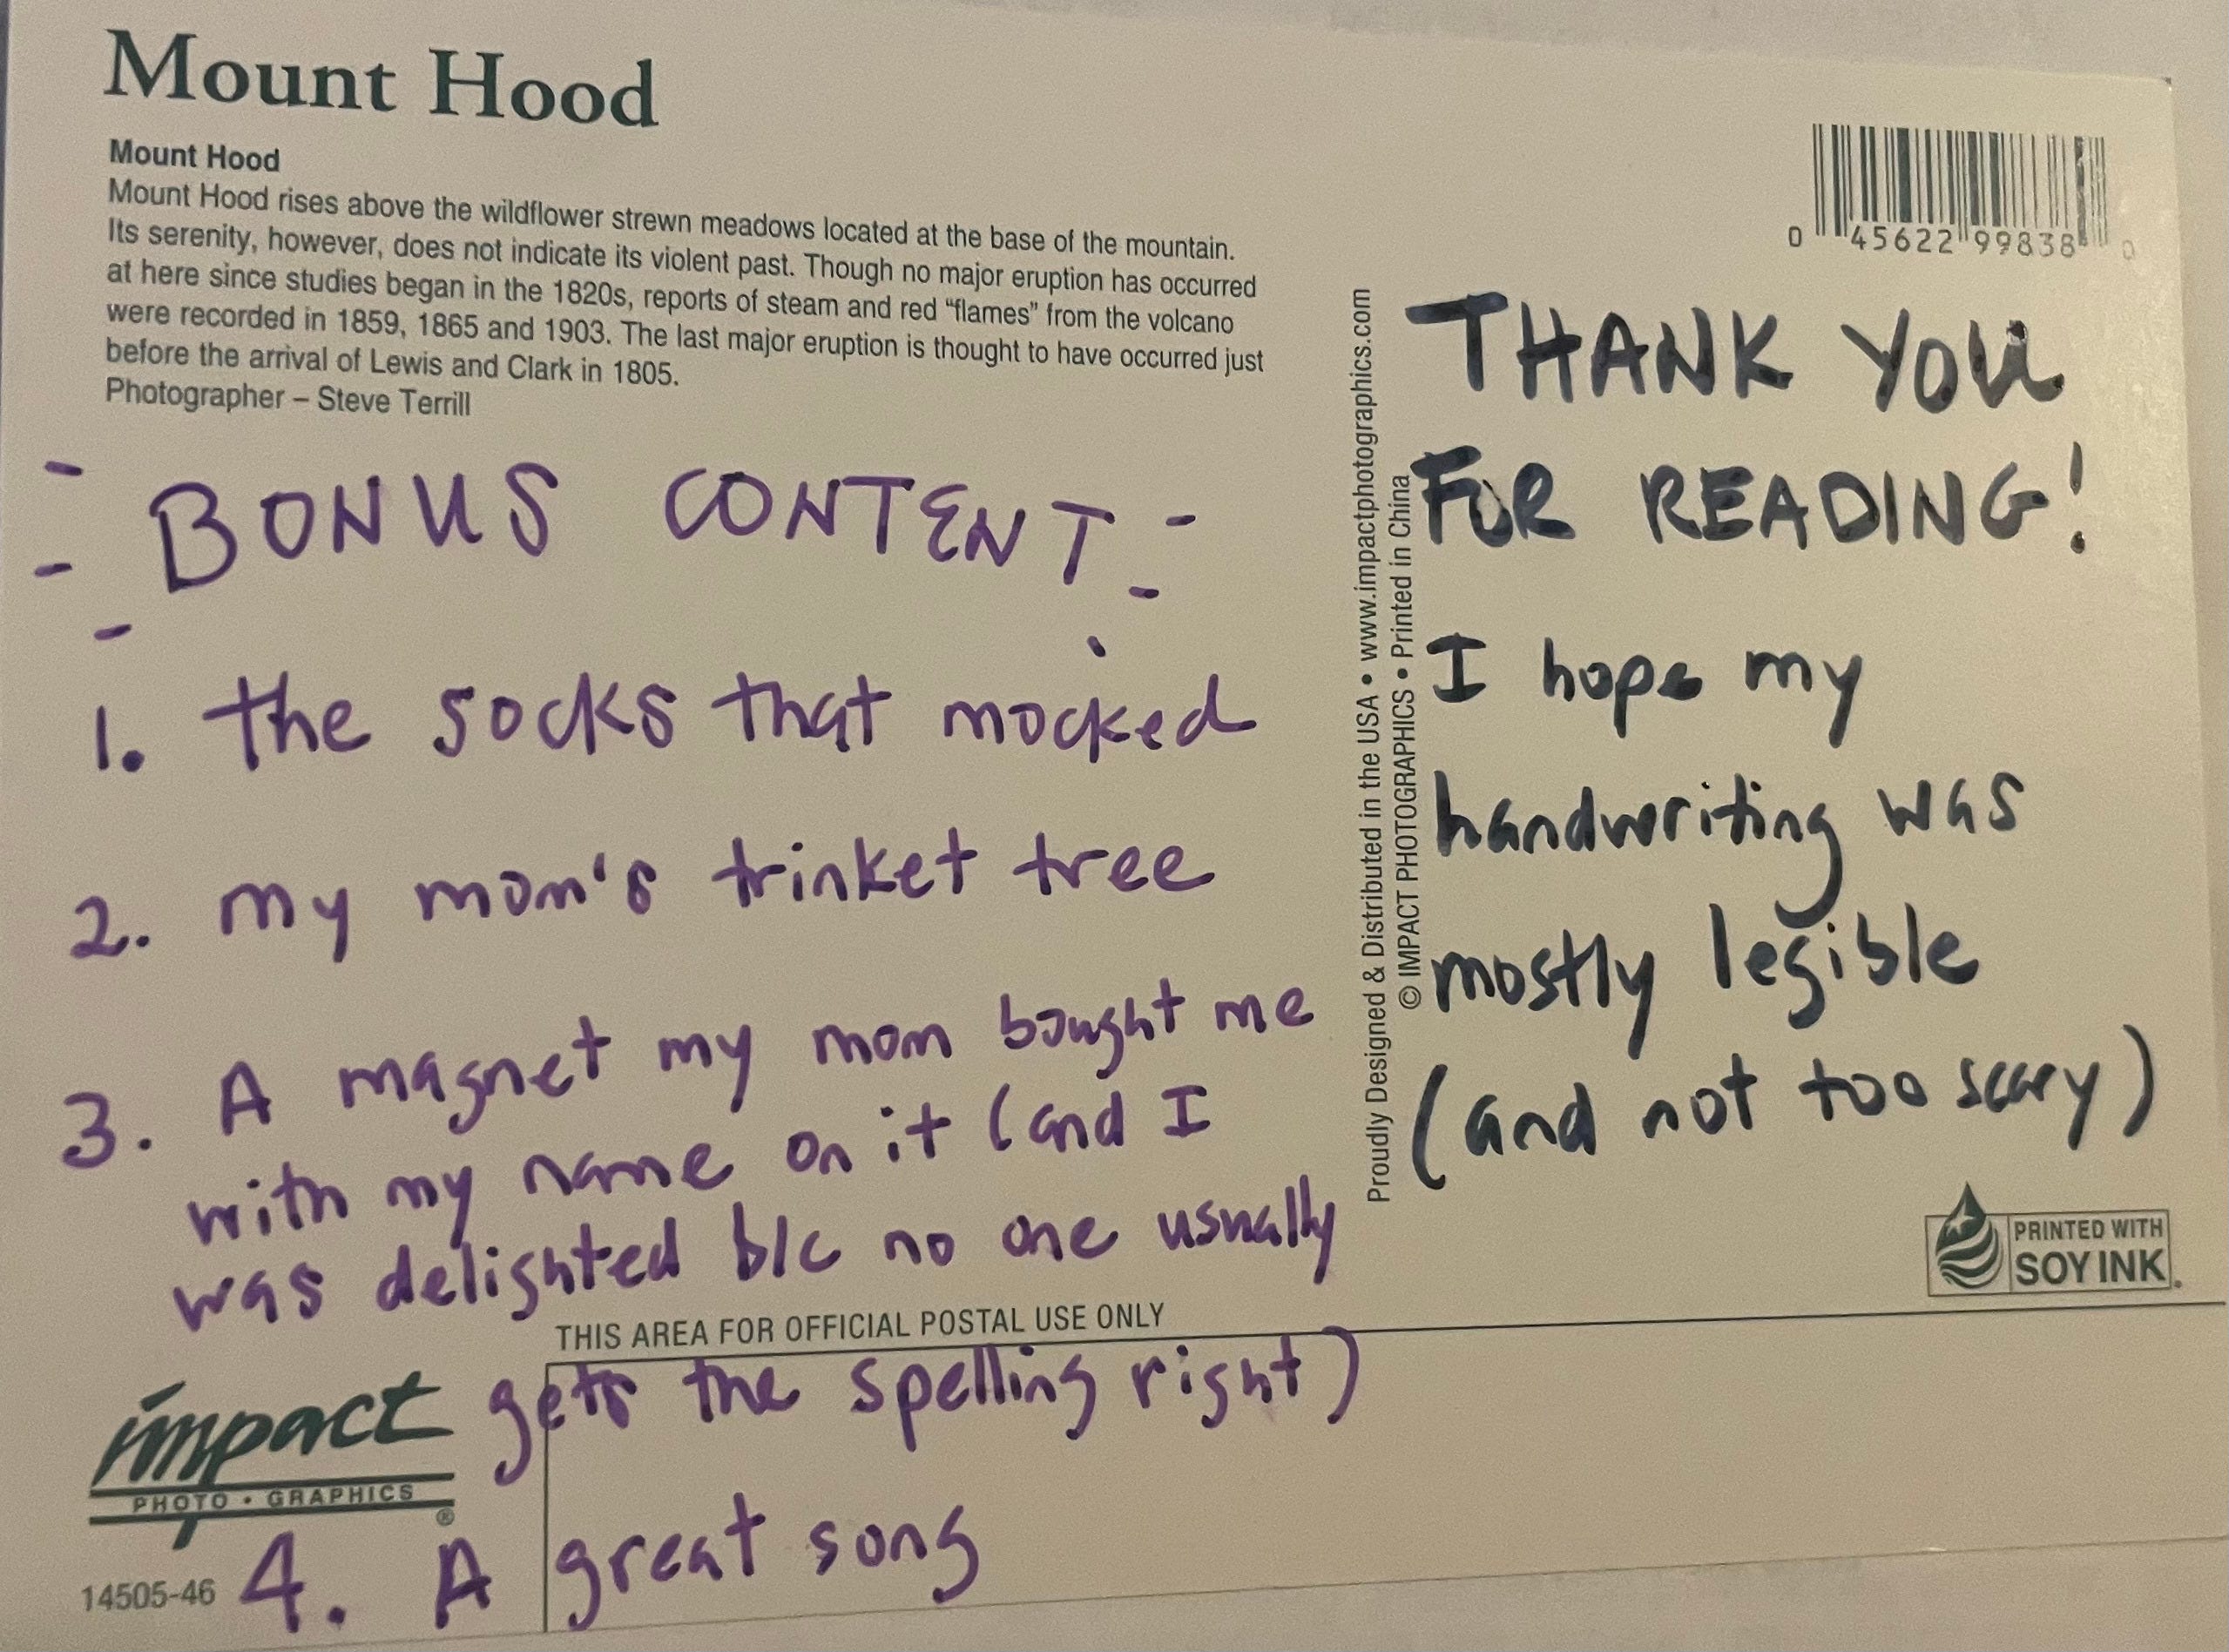 Mount Hood
Mount Hood
Mount Hood rises above the wildflower strewn meadows located at the base of the mountain.
Its serenity, however, does not indicate its violent past. Though no major eruption has occurred
at here since studies began in the 1820s, reports of steam and red “flames” from the volcano
were recorded in 1859, 1865 and 1903. The last major eruption is thought to have occurred just
before the arrival of Lewis and Clark in 1805.
Photographer – Steve Terrill
BONUS CONTENT
1. the socks that mocked
2. my mom's trinket tree
3. A magnet my mom bought me
with my name on it (and I
was delighted b/c no one usually
THIS AREA FOR OFFICIAL POSTAL USE ONLY
gets the spelling right)
impact
PHOTO • GRAPHICS
®
14505-46
4. A great song
Proudly Designed & Distributed in the USA • www.impactphotographics.com
© IMPACT PHOTOGRAPHICS • Printed in China
0 45622 99838 0
THANK YOU
FOR READING!
I hope my
handwriting was
mostly legible
(and not too scary)
PRINTED WITH
SOY INK